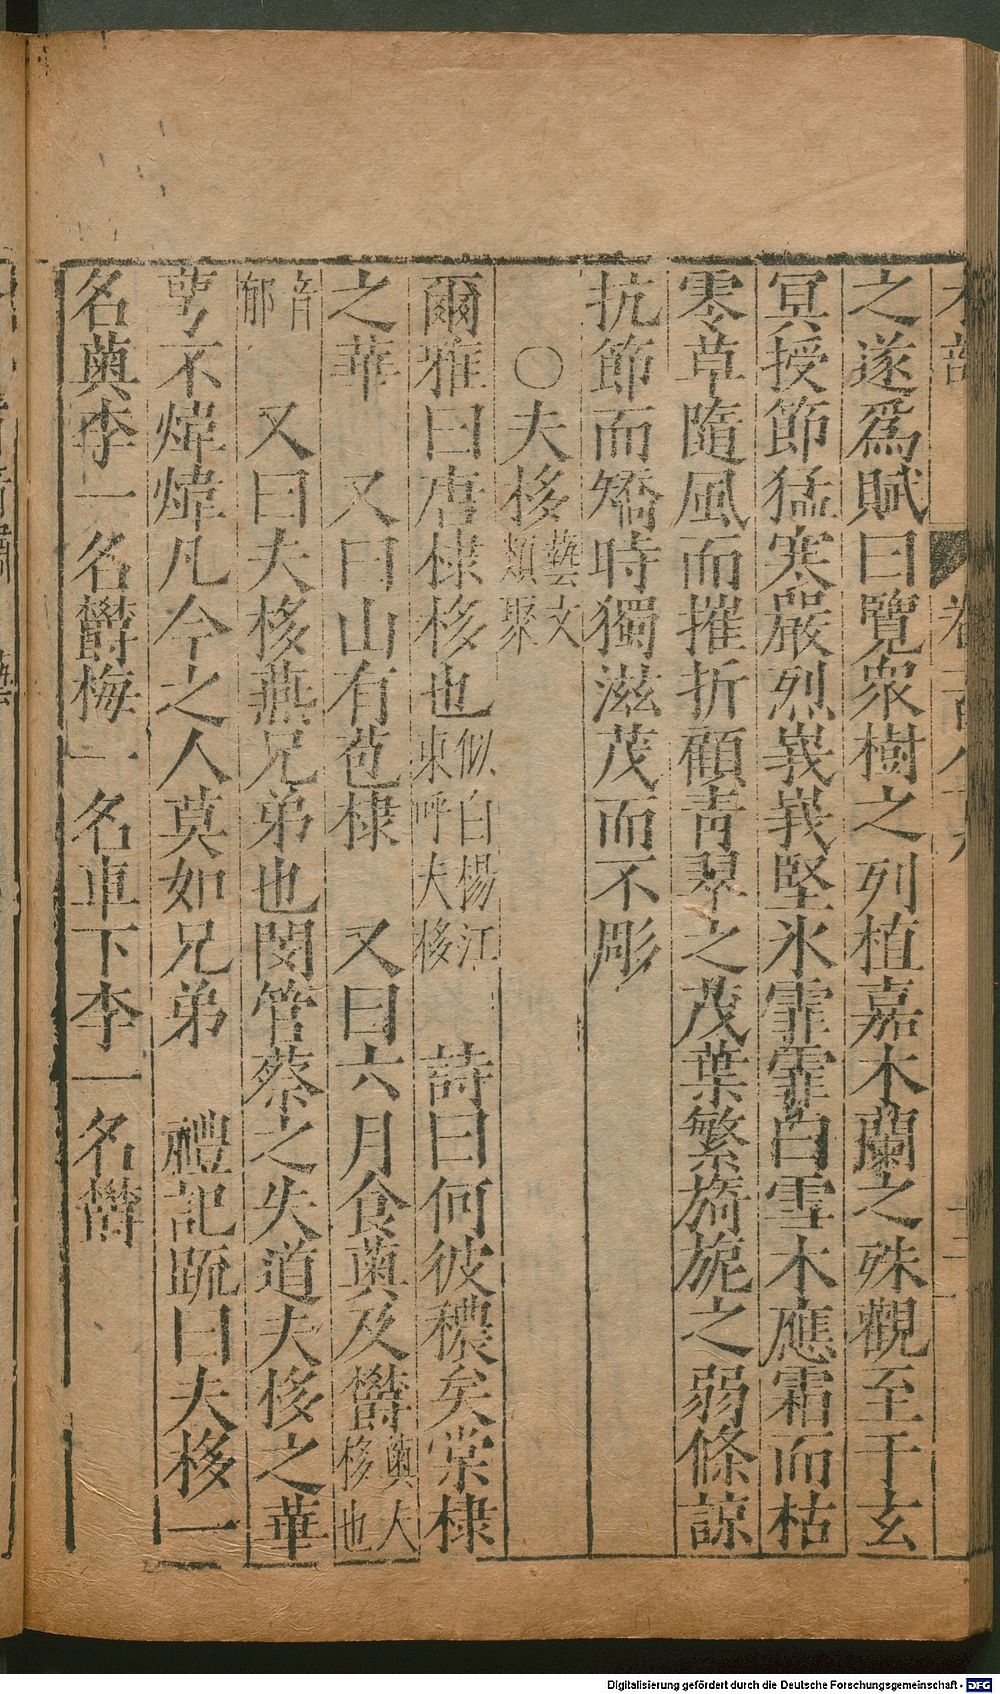 之遂爲賦曰覽衆樹之列植嘉木蘭之殊觀至于玄
冥授節猛寒嚴烈峩峩堅氷霏霏白雪木應霜而枯
零草隨風而摧折顧靑翠之茂葉繁旖旎之弱條諒
抗節而矯時獨滋茂而不彫
〇夫栘藝文類聚
爾雅曰唐棣栘也似白楊江東呼夫栘 詩曰何彼穠矣棠棣
之華 又曰山有苞棣 又曰六月食薁及欝薁大栘也
音郁 又曰夫栘燕兄弟也閔管蔡之失道夫栘之華
萼不煒煒凡今之人莫如兄弟 禮記䟽曰夫栘一
名薁李一名欝梅一名車下李一名欝
Digitalisierung gefördert durch die Deutsche Forschungsgemeinschaft - DFG